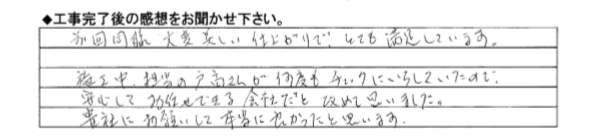 ◆工事完了後の感想をお聞かせ下さい。
前回同様 大変美しい仕上がりで、とても満足しています。
施工中、担当の戸高さんが何度もチェックにいらしていたので、
安心してお任せできる会社だと改めて思いました。
貴社にお願いして本当に良かったと思います。